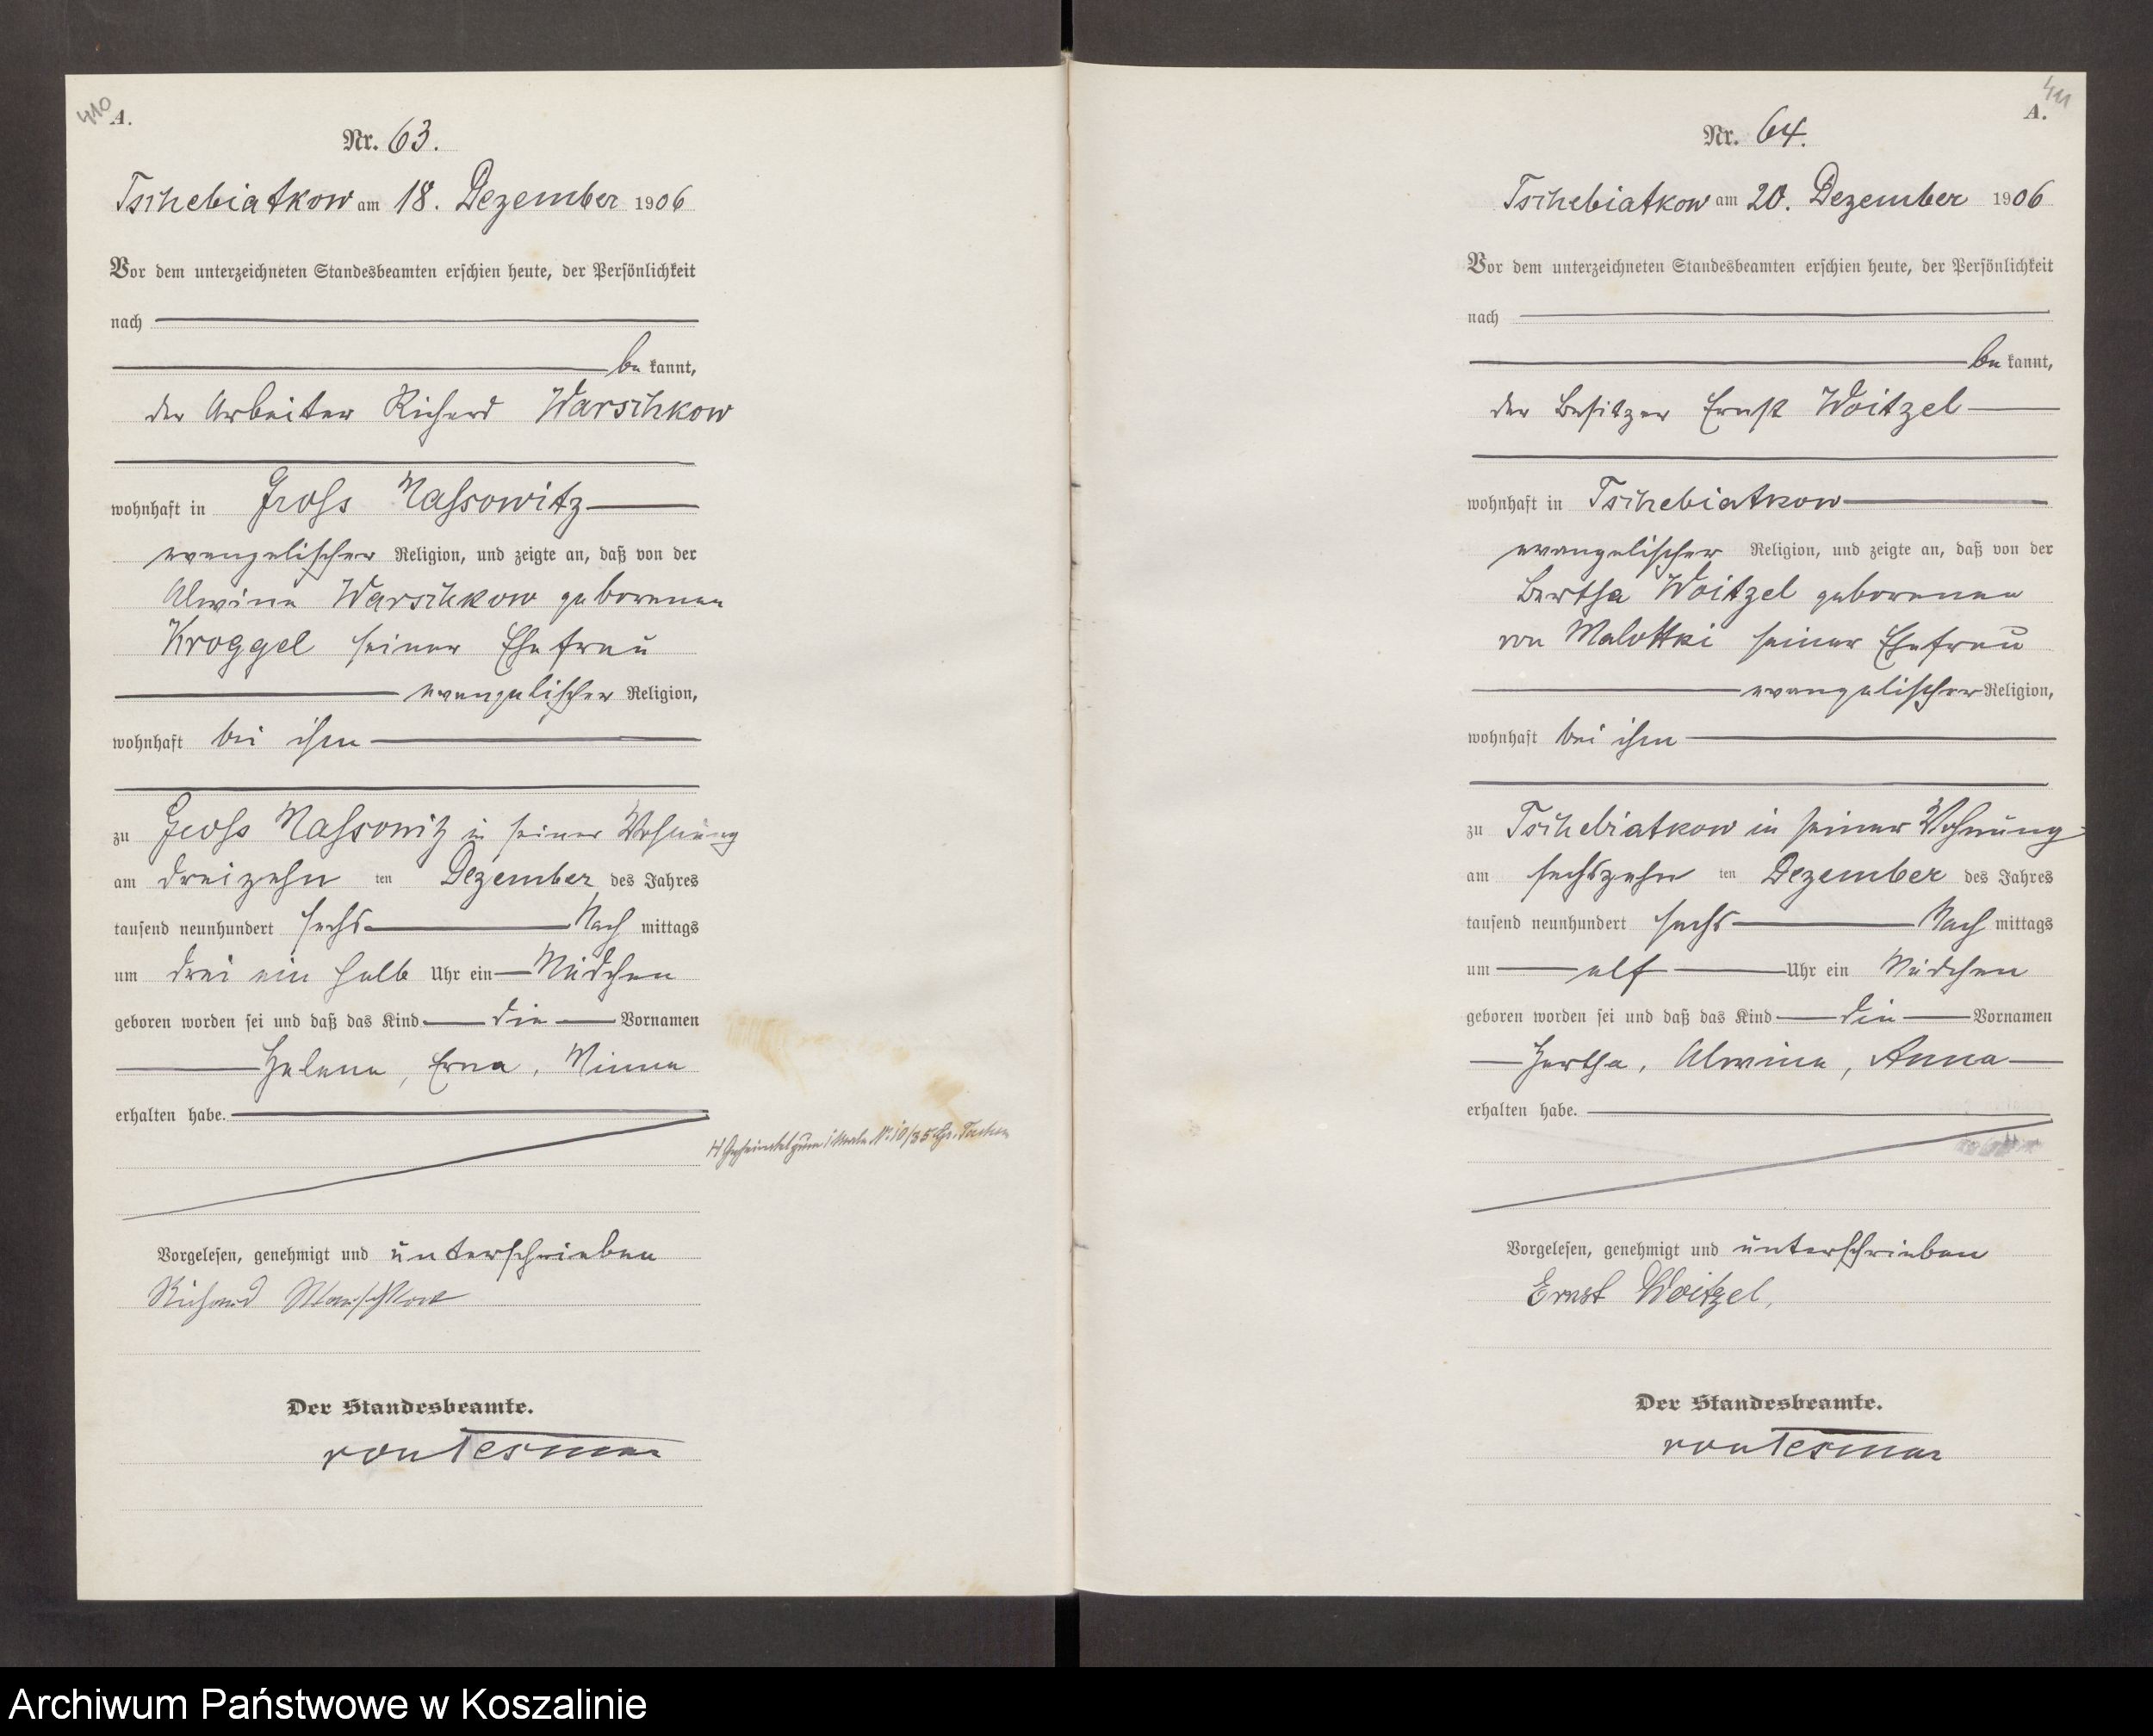 410
A.
Nr. 63.
Tschebiatkow am 18. Dezember 1906
Vor dem unterzeichneten Standesbeamten erschien heute, der Persönlichkeit
nach
be kannt,
der Arbeiter Richard Warschkow
wohnhaft in Gross Massowitz
evangelischer Religion, und zeigte an, daß von der
Alwine Warschkow geborenen
Kroggel seiner Ehefrau
evangelischer Religion,
wohnhaft bei ihm
zu Gross Massowitz in seiner Wohnung
am dreizehn ten Dezember des Jahres
tausend neunhundert sechs Nach mittags
um drei ein halb Uhr ein Mädchen
geboren worden sei und daß das Kind die Vornamen
Helene, Erna, Minna
erhalten habe.
No 10/35
Vorgelesen, genehmigt und unterschrieben
Richard Warschkow
Der Standesbeamte.
von Tesmar
411
A.
Nr. 64.
Tschebiatkow am 20. Dezember 1906
Vor dem unterzeichneten Standesbeamten erschien heute, der Persönlichkeit
nach
be kannt,
der Besitzer Ernst Woitzel
wohnhaft in Tschebiatkow
evangelischer Religion, und zeigte an, daß von der
Bertha Woitzel geborenen
von Malottki seiner Ehefrau
evangelischer Religion,
wohnhaft bei ihm
zu Tschebiatkow in seiner Wohnung
am sechszehn ten Dezember des Jahres
tausend neunhundert sechs Nach mittags
um elf Uhr ein Mädchen
geboren worden sei und daß das Kind die Vornamen
Hertha, Alwine, Anna
erhalten habe.
Vorgelesen, genehmigt und unterschrieben
Ernst Woitzel,
Der Standesbeamte.
von Tesmar
Archiwum Państwowe w Koszalinie